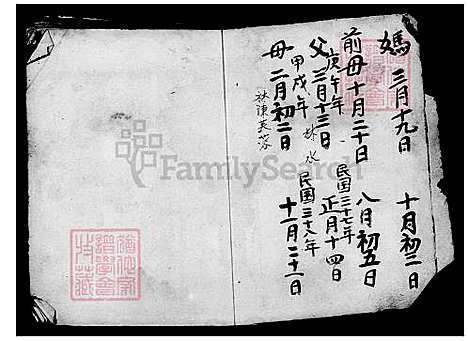 媽 三月十九日 十月初二日
前母 十月二十日 八月初五日
庚午年 民国三十七年
父 三月十三日 林水 正月十四日
甲戌年 民国三十八年
母 二月初二日 十一月二十一日
林陳芙蓉
FamilySearch